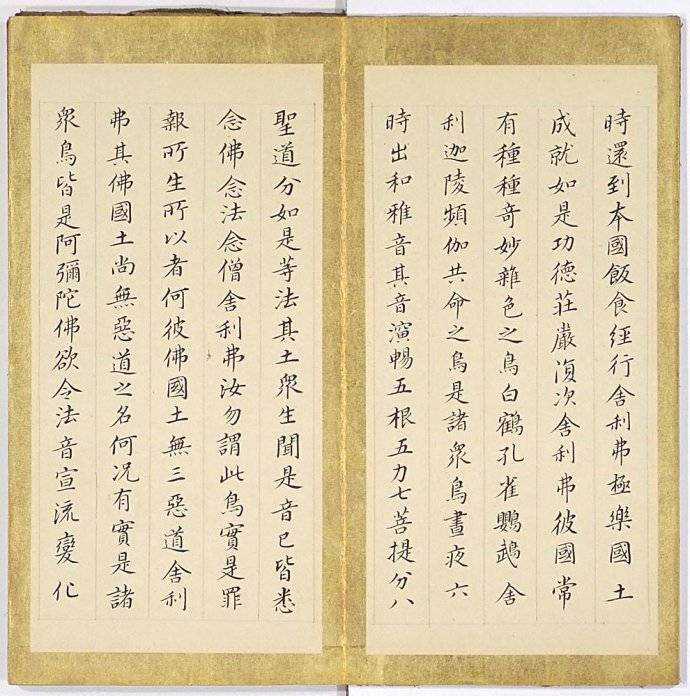 時還到本國飯食經行舍利弗極樂國土
成就如是功德莊嚴復次舍利弗彼國常
有種種奇妙雜色之鳥白鶴孔雀鸚鵡舍
利迦陵頻伽共命之鳥是諸衆鳥晝夜六
時出和雅音其音演暢五根五力七菩提分八
聖道分如是等法其土衆生聞是音已皆悉
念佛念法念僧舍利弗汝勿謂此鳥實是罪
報所生所以者何彼佛國土無三惡道舍利
弗其佛國土尚無惡道之名何況有實是諸
衆鳥皆是阿彌陀佛欲令法音宣流變化